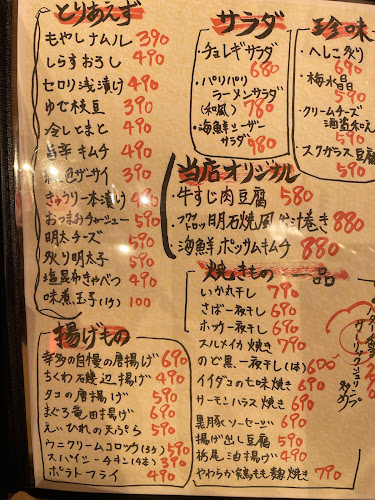 とりあえず
もやしナムル 390
しらすおろし 490
セロリ浅漬け 490
ゆで枝豆 390
冷しとまと 490
旨辛キムチ 490
ザーサイ 390
きゅうり一本漬け 490
おつまみチャーシュー 590
明太チーズ 590
炙り明太子 590
塩昆布きゃべつ 490
味煮玉子(1ケ) 100
揚げもの
幸多の自慢の唐揚げ 690
ちくわ石磯辺揚げ 490
タコの唐揚げ 590
まぐろ竜田揚げ 690
えいひれの天ぷら 590
ウニクリームコロッケ(3ケ) 590
スパイシーチキン(4本) 390
ポテトフライ 490
サラダ
・チョレギサラダ
680
・パリパリ
ラーメンサラダ
(和風) 780
・海鮮シーザー
サラダ 980
珍味
・へしこ炙り
690
・梅水晶
590
・クリームチーズ
酒盗和え
590
・スクガラス豆腐
590
当店オリジナル
・牛すじ肉豆腐 580
・フワフワトロトロ明石焼風だし汁巻き 880
・海鮮ポッサムキムチ 880
焼きもの一品
いか丸干し 790
さば一夜干し 690
ホッケ一夜干し 690
スルメイカ焼き 790
のど黒一夜干し(1枚) 600
イイダコの七味焼き 690
サーモンハラス焼き 690
黒豚ソーセージ 690
揚げ出し豆腐 590
栃尾油揚げ 490
やわらか鶏もも麹焼き 790
ガーリックシュリンプ